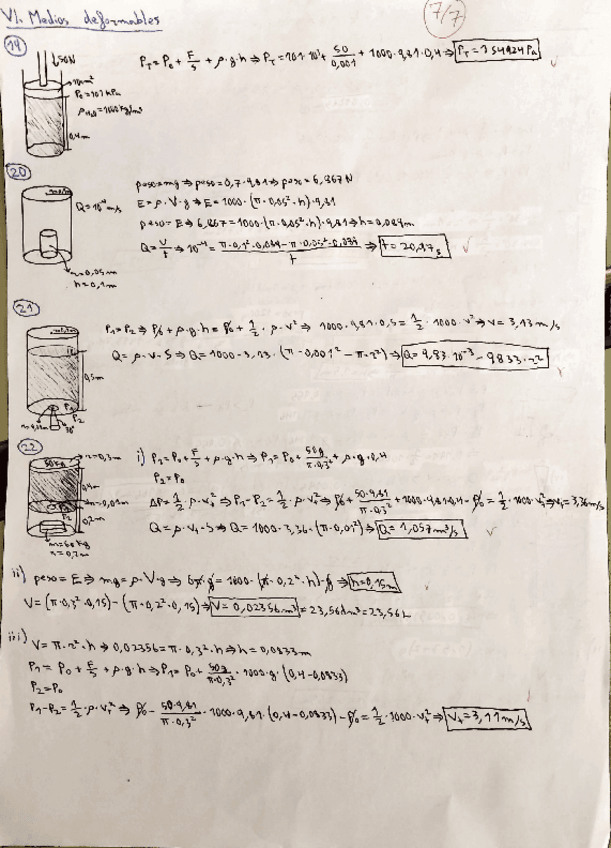 VI. Medios deformables
7/7
19
50N
10cm²
P₀=101kPa
ρH₂O=1000kg/m³
0,4m
P_T = P₀ + F/S + ρ·g·h ⇒ P_T = 101·10³ + 50/0,001 + 1000·9,81·0,4 ⇒ P_T = 154924Pa
20
Q=10⁻⁴m³/s
r=0,05m
h=0,1m
peso=mg ⇒ peso=0,7·9,81 ⇒ peso=6,867N
E=ρ·V·g ⇒ E=1000·(π·0,05²·h)·9,81
peso=E ⇒ 6,867=1000·(π·0,05²·h)·9,81 ⇒ h=0,089m
Q=V/t ⇒ 10⁻⁴ = (π·0,1²·0,089-π·0,05²·0,089)/t ⇒ t=20,97s
21
0,5m
P₁
P₂
P₁=P₂ ⇒ P₀+ρ·g·h=P₀+1/2·ρ·v² ⇒ 1000·9,81·0,5=1/2·1000·v² ⇒ v=3,13m/s
Q=ρ·v·S ⇒ Q=1000·3,13·(π·0,001²-π·r²) ⇒ Q=9,83·10⁻³-9833·r²
22
50kg
r=0,3m
0,4m
r=0,01m
0,2m
m=60kg
r=0,2m
i) P₁=P₀+F/S+ρ·g·h ⇒ P₁=P₀+50g/π·0,3²+ρ·g·0,4
P₂=P₀
ΔP=1/2·ρ·v₁² ⇒ P₁-P₂=1/2·ρ·v₁² ⇒ P₀+50·9,81/π·0,3²+1000·9,81·0,4-P₀=1/2·1000·v₁² ⇒ v₁=3,36m/s
Q=ρ·v₁·S ⇒ Q=1000·3,36·(π·0,01²) ⇒ Q=1,057m³/s
ii) peso=E ⇒ mg=ρ·V·g ⇒ 6π·g=1000·(π·0,2²·h)·g ⇒ h=0,15m
V=(π·0,3²·0,15)-(π·0,2²·0,15) ⇒ V=0,02356m³=23,56dm³=23,56L
iii) V=π·r²·h ⇒ 0,02356=π·0,3²·h ⇒ h=0,0833m
P₁=P₀+F/S+ρ·g·h ⇒ P₁=P₀+50g/π·0,3²·1000·g·(0,4-0,0833)
P₂=P₀
P₁-P₂=1/2·ρ·v₁² ⇒ P₀-50·9,81/π·0,3²-1000·9,81·(0,4-0,0833)-P₀=1/2·1000·v₁² ⇒ v₁=3,11m/s